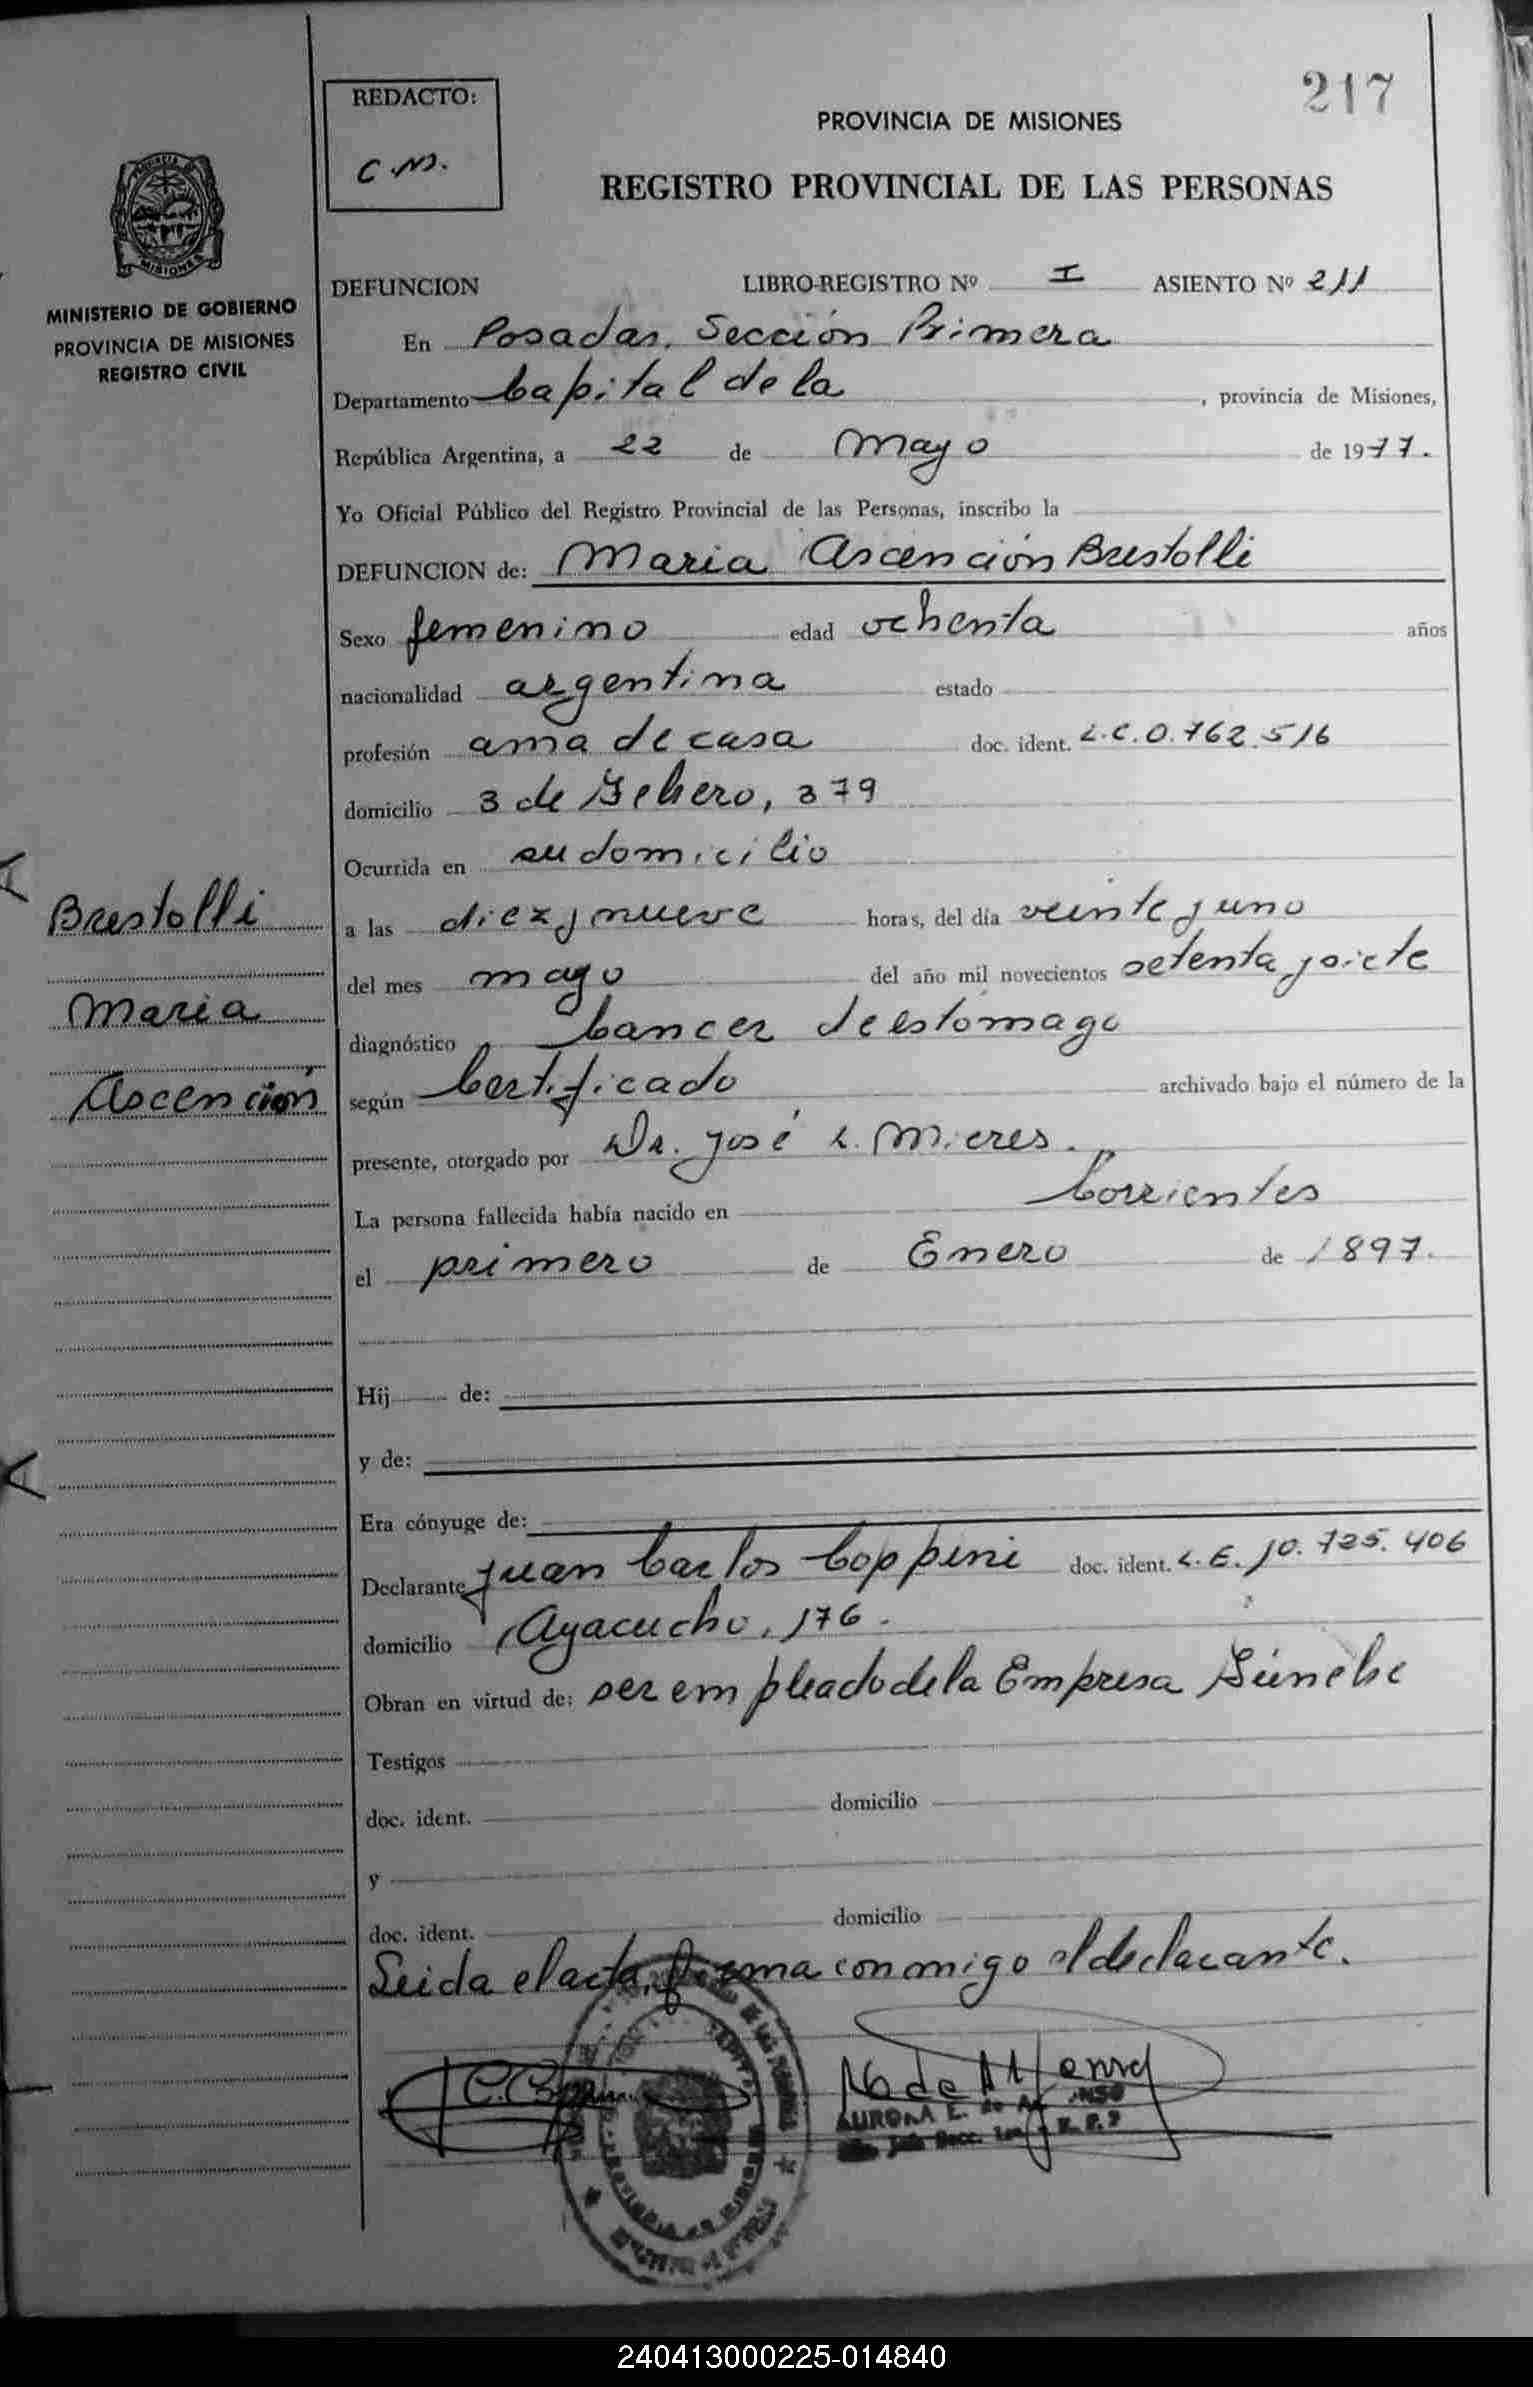 217
REDACTO:
C.M.
PROVINCIA DE MISIONES
REGISTRO PROVINCIAL DE LAS PERSONAS
MINISTERIO DE GOBIERNO
PROVINCIA DE MISIONES
REGISTRO CIVIL
DEFUNCION LIBRO-REGISTRO Nº I ASIENTO Nº 211
En Posadas, Sección Primera
Departamento Capital de la , provincia de Misiones,
República Argentina, a 22 de Mayo de 1977.
Yo Oficial Público del Registro Provincial de las Personas, inscribo la
DEFUNCION de: Maria Ascención Brestolli
Sexo femenino edad ochenta años
nacionalidad argentina estado
profesión ama de casa doc. ident. L.C.0.762.516
domicilio 3 de Febrero, 379
Ocurrida en su domicilio
Brestolli
Maria
Ascención
a las diez y nueve horas, del día veinte y uno
del mes mayo del año mil novecientos setenta y siete
diagnóstico Cancer de estomago
según Certificado archivado bajo el número de la
presente, otorgado por Dr. José L. Mieres.
La persona fallecida había nacido en Corrientes
el primero de Enero de 1897.
Hij de:
y de:
Era cónyuge de:
Declarante Juan Carlos Coppini doc. ident. L.E. 10.725.406
domicilio Ayacucho, 176.
Obran en virtud de: ser empleado de la Empresa
Testigos
doc. ident. domicilio
y
doc. ident. domicilio
Leida el acta, firma conmigo el declarante.
AURORA E. de
240413000225-014840